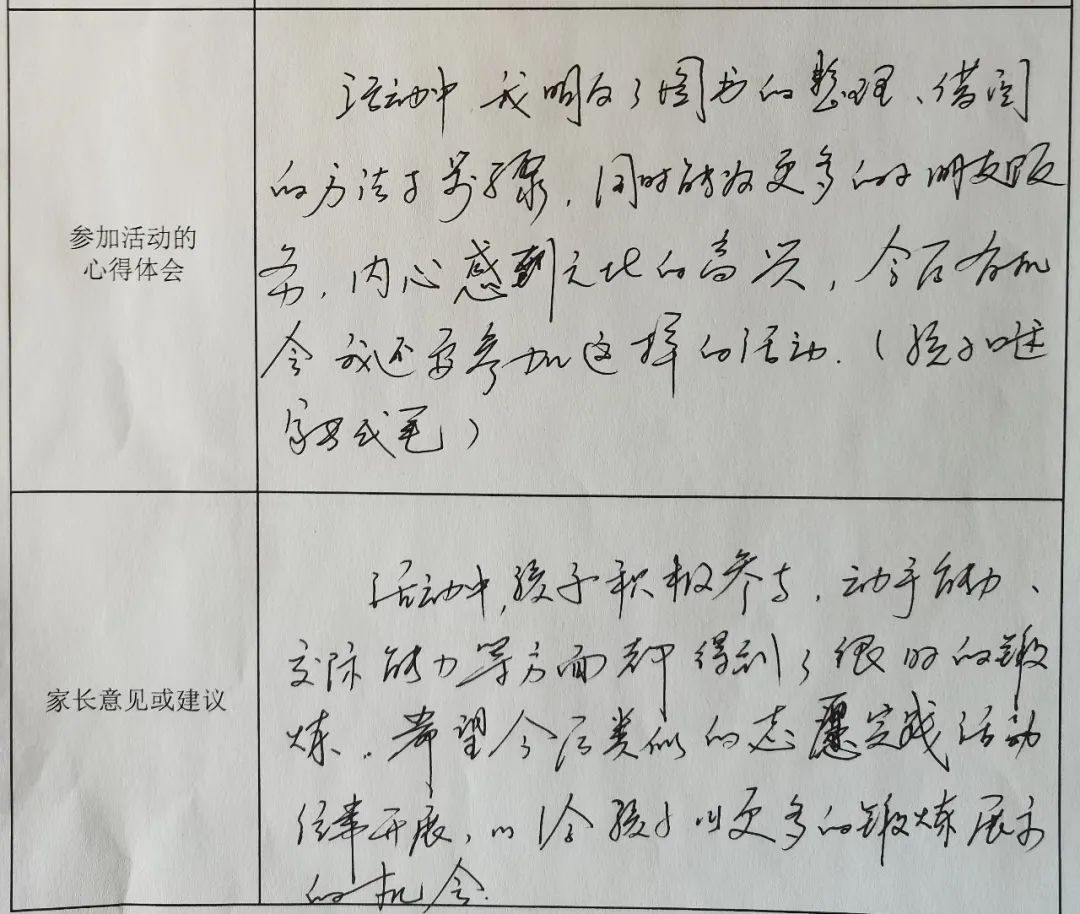 参加活动的
心得体会
活动中,我明白了图书的整理、借阅
的方法与步骤,同时能为更多的小朋友服
务,内心感到无比的高兴,今后有机
会我还要参加这样的活动.(孩子口述
家长代笔)
家长意见或建议
活动中,孩子积极参与,动手能力、
交际能力等方面都得到了很好的锻
炼.希望今后类似的志愿实践活动
经常开展,以给孩子以更多的锻炼展示
的机会.